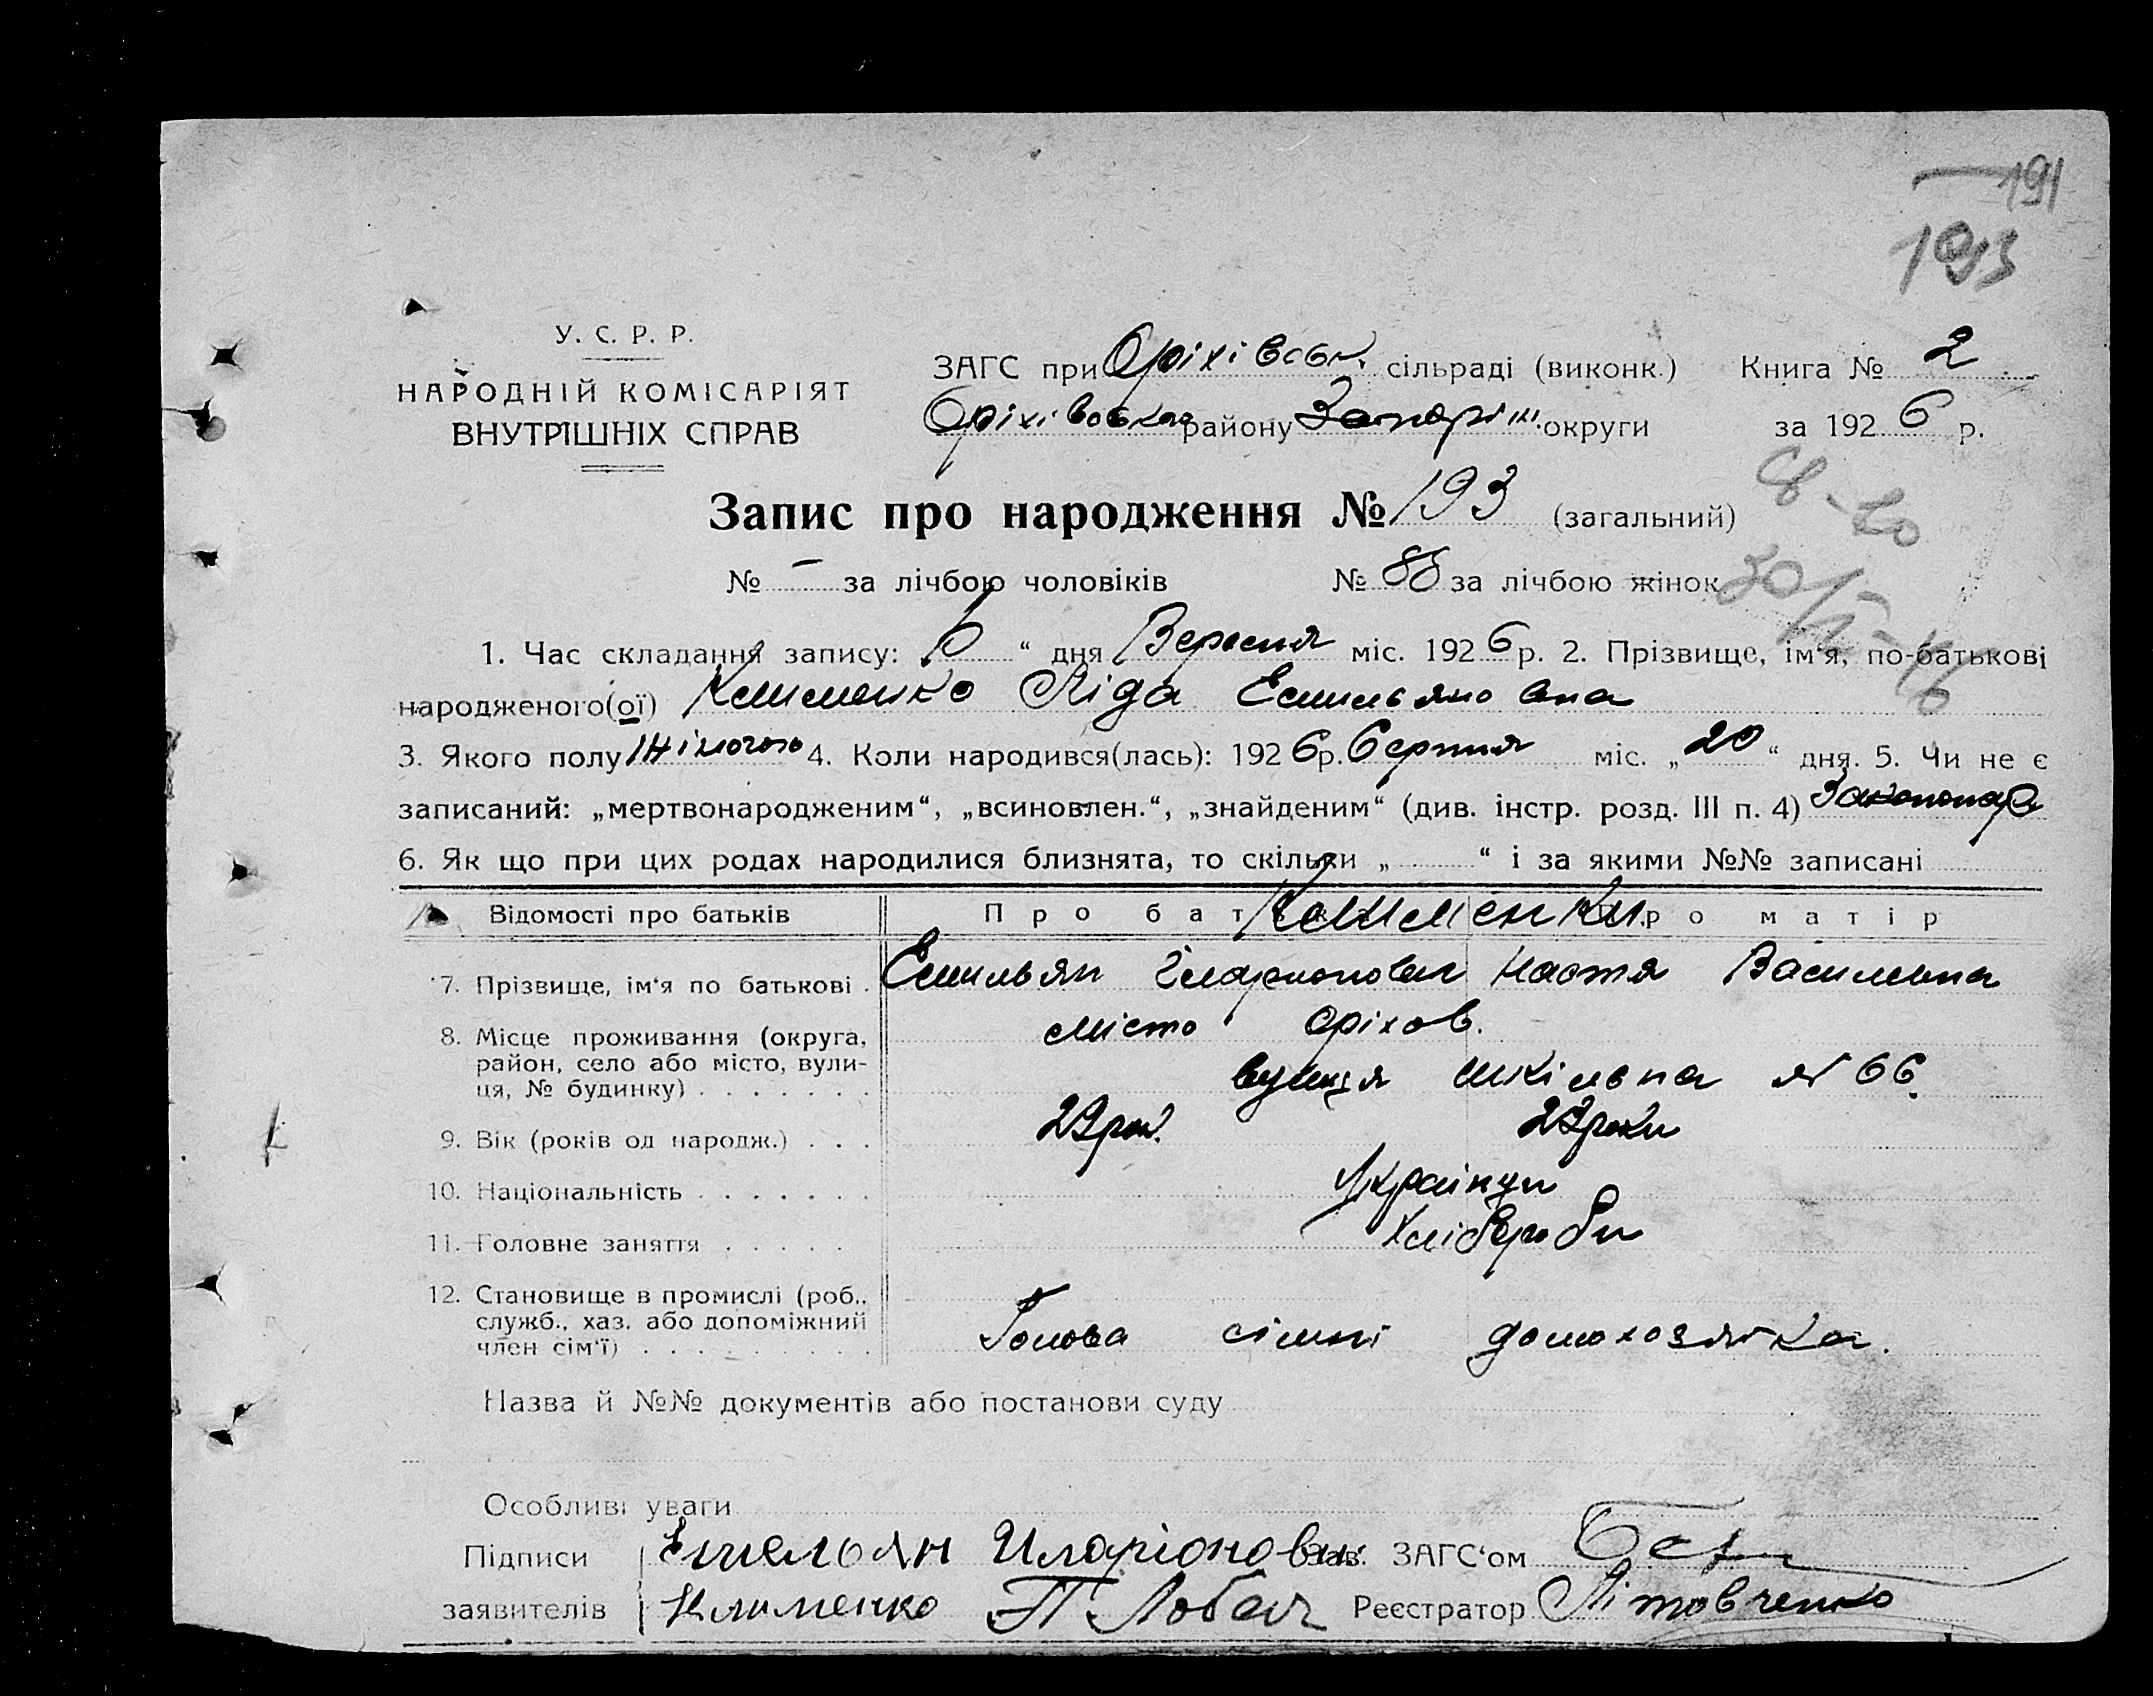 191
193
У. С. Р. Р.
НАРОДНІЙ КОМІСАРІЯТ
ВНУТРІШНІХ СПРАВ
ЗАГС при Оріхівськ. сільраді (виконк.) Книга № 2
Оріхівськ району Запоріж. округи за 1926 р.
Запис про народження № 193 (загальний)
№ — за лічбою чоловіків № 85 за лічбою жінок
св-во
30/
1. Час складання запису: „ “ дня Вересня міс. 1926 р. 2. Прізвище, ім‘я, по-батькові
народженого(ої) Клименко Ліда Емильяновна
3. Якого полу жіночого 4. Коли народився(лась): 1926 р. Серпня міс. „20“ дня. 5. Чи не є
записаний: „мертвонародженим“, „всиновлен.“, „знайденим“ (див. інстр. розд. III п. 4)
6. Як що при цих родах народилися близнята, то скільки „ “ і за якими №№ записані
Відомості про батьків Про батька Про матір
Клименки
7. Прізвище, ім‘я по батькові . Емильян Іларионович Настя Васильевна
8. Місце проживання (округа, район, село або місто, вулиця, № будинку) . . . . . . . місто Оріхов.
вулиця шкільна № 66.
9. Вік (років од народж.) . . . 29 рок. 29 роки
10. Національність . . . . . . . Українци
11. Головне заняття . . . . . Хлібороби
12. Становище в промислі (роб., служб., хаз. або допоміжний член сім‘ї) . . . . . . . . . Голова сімьї домохозяйка.
Назва й №№ документів або постанови суду
Особливі уваги
Підписи Емельян Иларіонович Зав. ЗАГС‘ом
заявителів Клименко П Лобач Реєстратор Літовченко